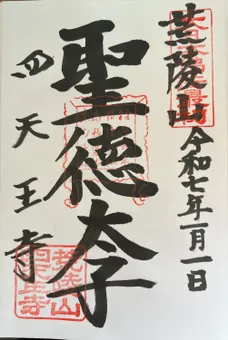 荒陵山
令和七年一月一日
聖徳太子
四天王寺
荒陵山
四天王寺